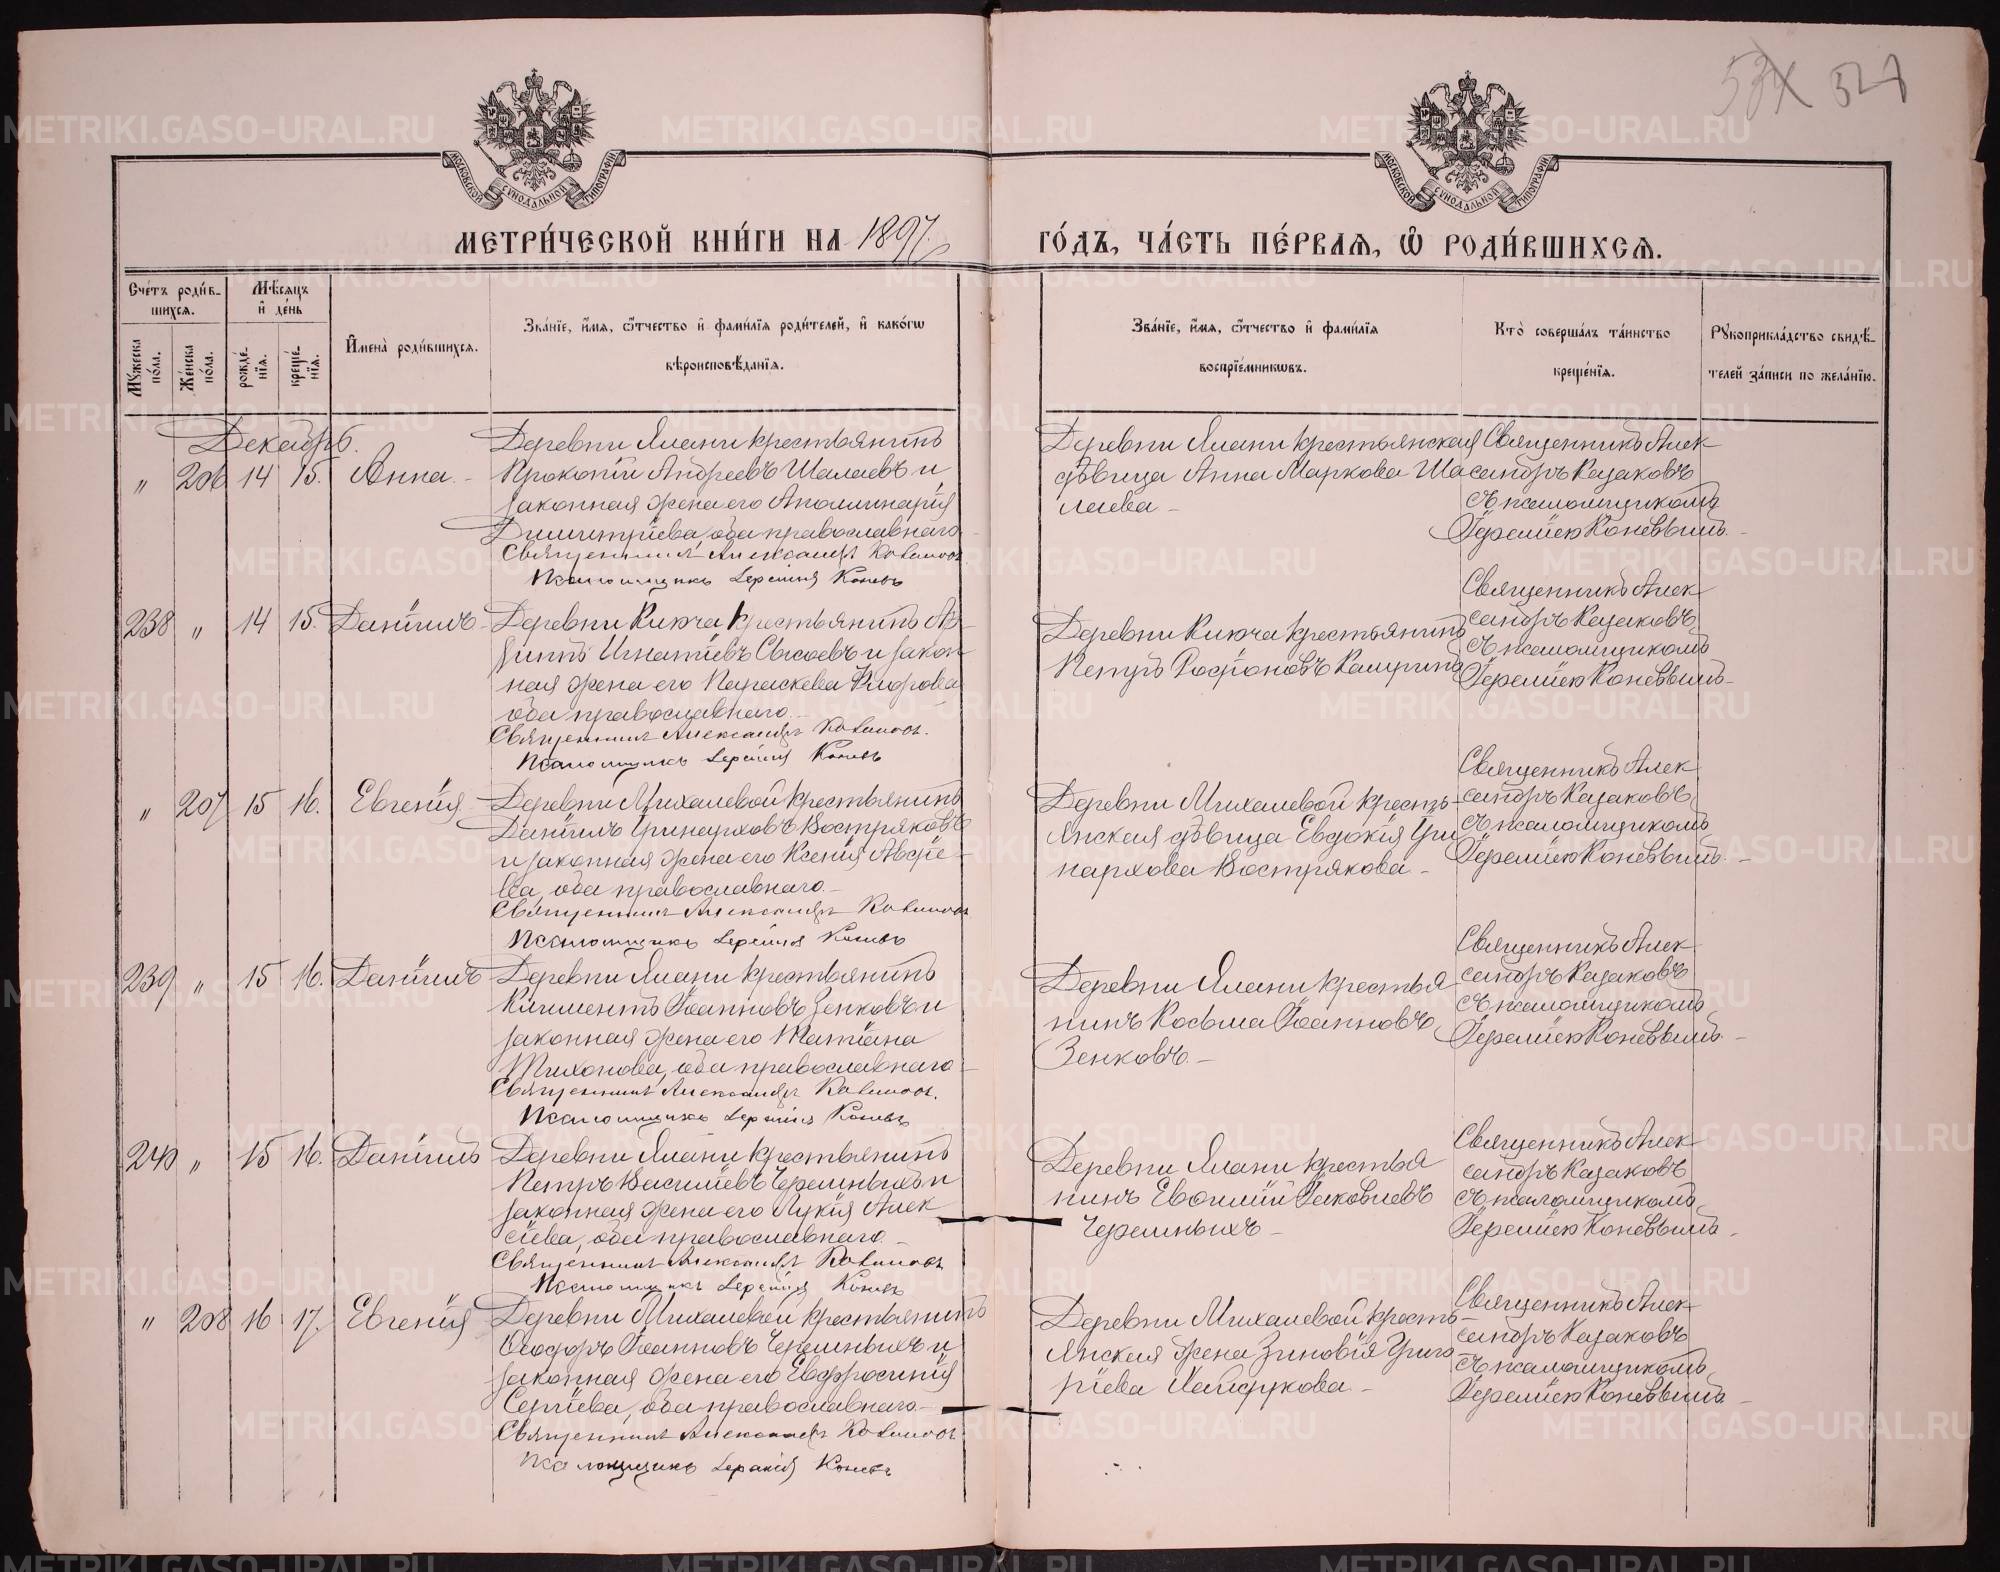 53X 527
МОСКОВСКОЙ СѴНОДАЛЬНОЙ ТИПОГРАФІИ
МОСКОВСКОЙ СѴНОДАЛЬНОЙ ТИПОГРАФІИ
МЕТРИ́ЧЕСКОЙ КНИ́ГИ НА 1897
ГО́ДЪ, ЧА́СТЬ ПЕ́РВАЯ, Ѿ РОДИ́ВШИХСЯ.
Сче́тъ роди́в-
шихся.
Мѣ́сяцъ
и҆ де́нь
Му́жеска по́ла.
Же́нска по́ла.
рожде́-
нїя.
креще́-
нїя.
И҆мена̀ роди́вшихся.
Зва́нїе, и҆́мя, ѻ҆́тчество и҆ фами́лїя роди́телей, и҆ како́гѡ
вѣроисповѣ́данїя.
Зва́нїе, и҆́мя, ѻ҆́тчество и҆ фами́лїя
воспрїе́мникѡвъ.
Кто̀ соверша́лъ та́инство
креще́нїя.
Рукоприкла́дство свидѣ́-
телей за́писи по жела́нїю.
Декабрь.
" 206 14 15. Анна. -
Деревни Ялани крестьянинъ
Прокопій Андреевъ Шалаевъ и
законная жена его Аполлинарія
Димитріева, оба православнаго
Священникъ Александръ Казаковъ.
Псаломщикъ Іеремія Коневъ
Деревни Ялани крестьянская
дѣвица Анна Маркова Ша
лаева -
Священникъ Алек
сандръ Казаковъ
съ псаломщикомъ
Іереміею Коневымъ. -
238 " 14 15. Даніилъ
Деревни Киича крестьянинъ
Игнатіевъ Сысоевъ и закон
ная жена его Параскева
оба православнаго. -
Священникъ Александръ Казаковъ.
Псаломщикъ Іеремія Коневъ
Деревни Киича крестьянинъ
Петръ
Священникъ Алек
сандръ Казаковъ
съ псаломщикомъ
Іереміею Коневымъ -
" 207 15 16. Евгенія
Деревни Михалевой крестьянинъ
Даніилъ Иринарховъ Востряковъ
и законная жена его Ксенія
оба православнаго. -
Священникъ Александръ Казаковъ
Псаломщикъ Іеремія Коневъ
Деревни Михалевой кресть-
янская дѣвица Евдокія Ири
нархова Вострякова -
Священникъ Алек
сандръ Казаковъ
съ псаломщикомъ
Іереміею Коневымъ. -
239 " 15 16. Даніилъ
Деревни Ялани крестьянинъ
Климентъ Іоанновъ Зенковъ и
законная жена его Татіана
Тихонова, оба православнаго
Священникъ Александръ Казаковъ.
Псаломщикъ Іеремія Коневъ
Деревни Ялани крестья
нинъ Косьма Іоанновъ
Зенковъ. -
Священникъ Алек
сандръ Казаковъ
съ псаломщикомъ
Іереміею Коневымъ. -
240 " 15 16. Даніилъ
Деревни Ялани крестьянинъ
Петръ Василіевъ Черемныхъ и
законная жена его Лукія Алек
сіева, оба православнаго. -
Священникъ Александръ Казаковъ
Псаломщикъ Іеремія Коневъ
Деревни Ялани крестья
нинъ Евѳимій Іаковлевъ
Черемныхъ -
Священникъ Алек
сандръ Казаковъ
съ псаломщикомъ
Іереміею Коневымъ. -
" 208 16 17. Евгенія
Деревни Михалевой крестьянинъ
Ѳеодоръ Іоанновъ Черемныхъ и
законная жена его Евфросинія
Сергіева, оба православнаго. -
Священникъ Александръ Казаковъ
Псаломщикъ Іеремія Коневъ
Деревни Михалевой кресть-
янская жена Зиновія Григо
ріева
Священникъ Алек
сандръ Казаковъ
съ псаломщикомъ
Іереміею Коневымъ. -
METRIKI.GASO-URAL.RU